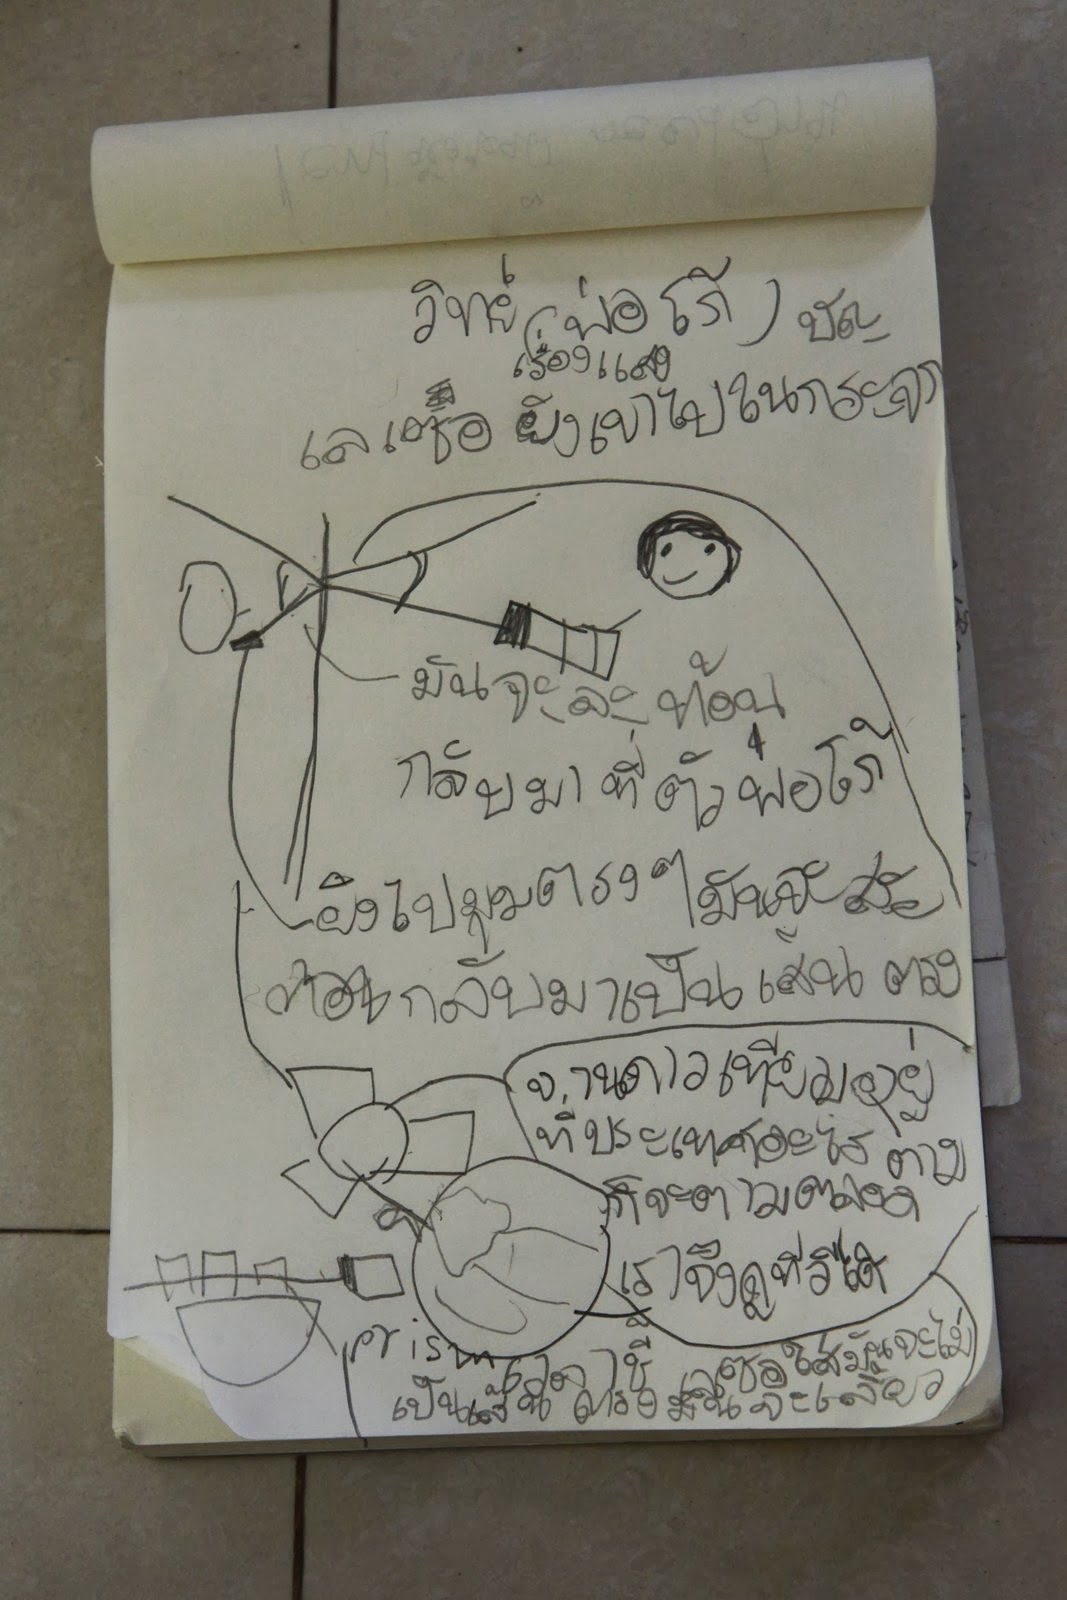 วิทย์ (พ่อโก้) ปัญ
เรื่องแสง
เลเซอื ยิงเขาไปในกระจก
มันจะสะท้อน
กลับมาที่ตัวพ่อโก้
ยิงไปมุมตรงๆ มันจะสะ
ท้อนกลับมาเป็นเส้นตรง
จานดาวเทียมอยู่
ที่ประเทศอะไร ต่าง
ก็จะตามตลอด
เราจึงดูทีวีได้
prism เวลาชี้ เลเซอใส่มันจะไม่
เป็นเส้นตรงมันจะเลี้ยว